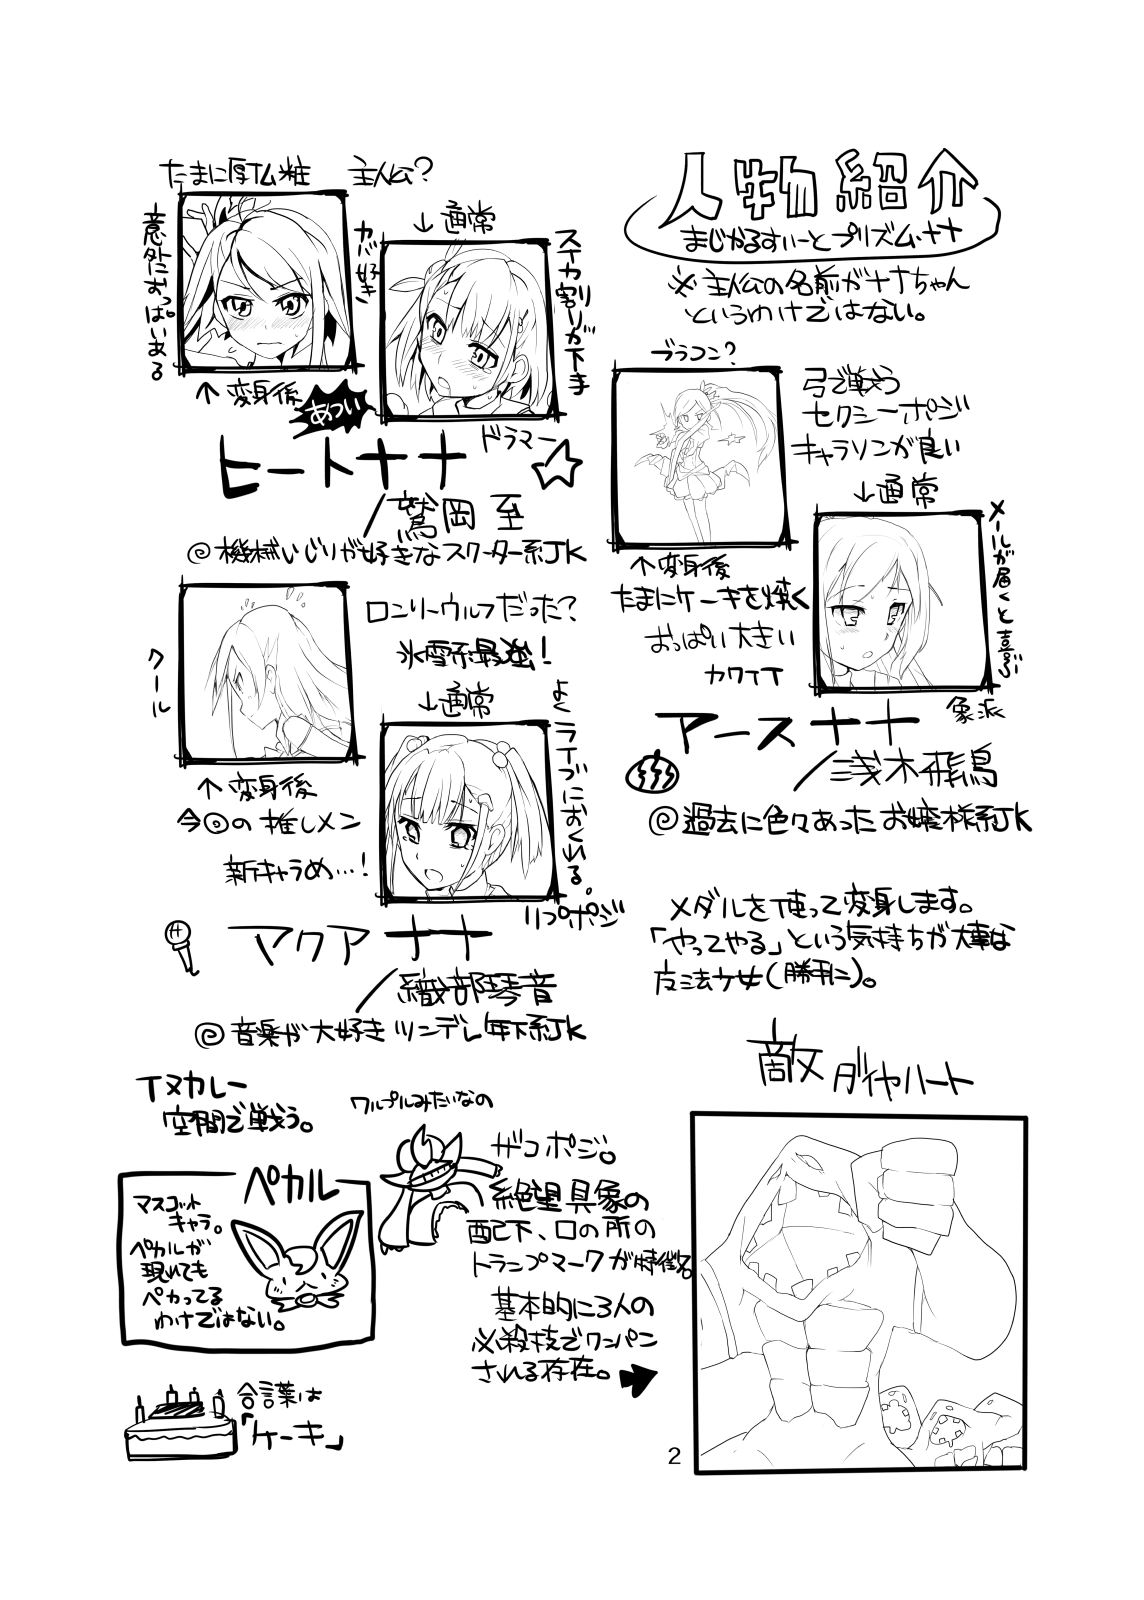 人物紹介
まじかるすいーとプリズム・ナナ
※主人公の名前がナナちゃん
というわけではない。
たまに厚化粧
主人公?
意外におっぱいある
↑変身後
あつい
カバ好き
↓通常
スイカ割りが下手
ドラマー
ヒートナナ
/鷲岡 至
@機械いじりが好きなスクーター系JK
ブラコン?
弓で戦う
セクシーポジ
キャラソンが良い
↓通常
↑変身後
メールが届くと喜ぶ
たまにケーキを焼く
おっぱい大きい
カワイイ
象派
アースナナ
/浅木飛鳥
@過去に色々あったお嬢様系JK
クール
ロンリーウルフだった?
氷雪系最強!
↓通常
↑変身後
よくライブにおくれる。
今◎の推しメン
新キャラめ…!
リップポジ
アクアナナ
/織部琴音
@音楽が大好きツンデレ年下系JK
メダルを使って変身します。
「やってやる」という気持ちが大事な
魔法少女(勝手に)。
敵 ダイヤハート
イヌカレー
空間で戦う。
ワルプルみたいなの
ザコポジ。
絶望具象の
配下、口の所の
トランプマークが特徴る
基本的に3人の
必殺技でワンパン
される存在。
ペカル
マスコット
キャラ。
ペカルが
現れても
ペカってる
わけではない。
合言葉は
「ケーキ」
2